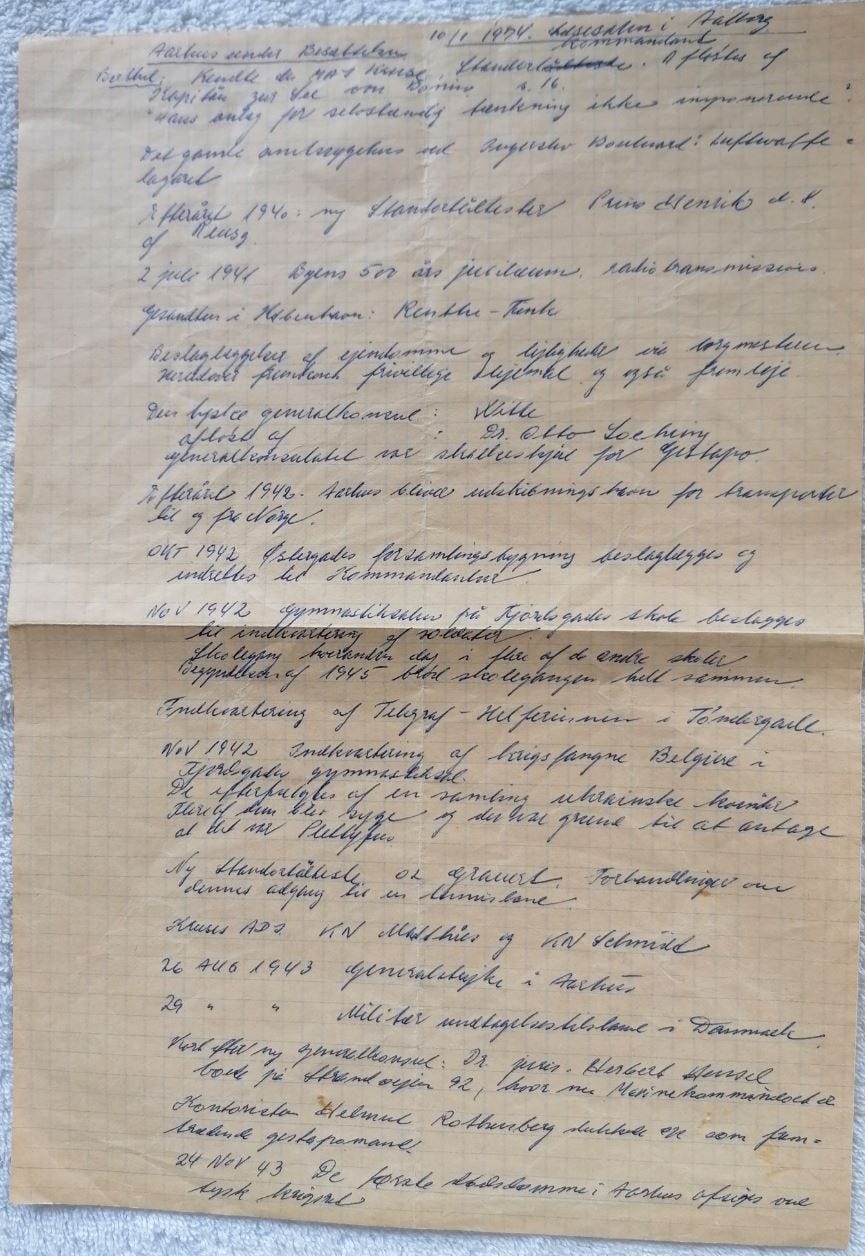 10/1 1974. Læsesalen i Aalborg
Aarhus under Besættelsen
Kommandant
Kendte du Kruse, . Afløstes af
Kapitän zur See von s. 16.
"Hans anlæg for selvstændig tænkning ikke imponerende".
Det gamle amtssygehus ved Ingerslev Boulevard: Luftwaffe-
lazaret
Efteråret 1940: ny Standortältester Prins Henrik d.
af Reuss.
2 juli 1941 Byens 500 års jubilæum. radiotransmission.
Gesandten i København: Renthe-Fink
Beslaglæggelser af ejendomme og lejligheder via borgmesteren.
frivillige lejemål og også fremleje.
Den tyske generalkonsul: Witte
afløst af : Dr. Otto
Generalkonsulatet var skalkeskjul for Gestapo.
Efterår 1942. Aarhus bliver udskibningshavn for transporter
til og fra Norge.
OKT 1942 Østergades forsamlingsbygning beslaglægges og
indrettes til Kommandantur
NOV 1942 Gymnastiksalen på Fjordsgades skole beslaglægges
til indkvartering af soldater.
Skolegang hveranden dag i flere af de andre skoler
Begyndelsen af 1945 brød skolegangen helt sammen.
Indkvartering af Telegraf-Helferinnen i Tøndergade.
NOV 1942 Indkvartering af krigsfangne Belgiere i
Fjordsgades gymnastiksal.
De efterfulgtes af en samling ukrainske kvinder
Flere af dem blev syge og der var grund til at antage
at det var Plettyfus
Ny Standortälteste Oz Grauert. Forhandlinger om
dennes adgang til en tennisbane.
Kruses ADJ. KN Matthies og KN Schmidt
26 AUG 1943 Generalstrejke i Aarhus
29 " " Militær undtagelsestilstand i Danmark.
Kort efter ny generalkonsul: Dr. juris. Herbert Hensel
boede på Strandvejen 92, hvor nu Marinekommandoet er
Kontoristen Helmut Rothenberg dukkede op som frem-
trædende gestapomand.
24 NOV 43 De første dødsdomme i Aarhus afsiges ved
tysk krigsret